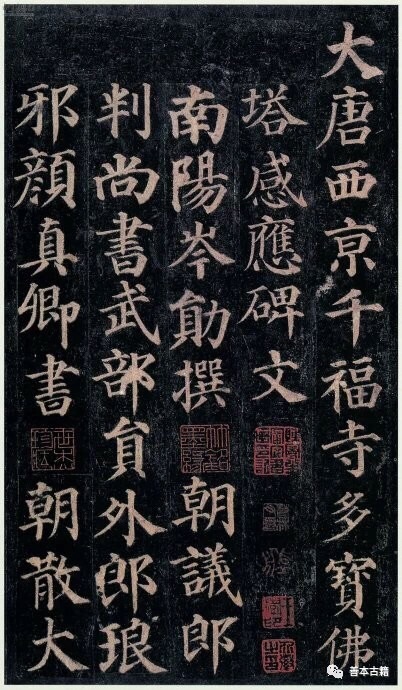 大唐西京千福寺多寶佛
塔感應碑文
南陽岑勛撰 朝議郎
判尚書武部員外郎琅
邪顏真卿書 朝散大
善本古籍